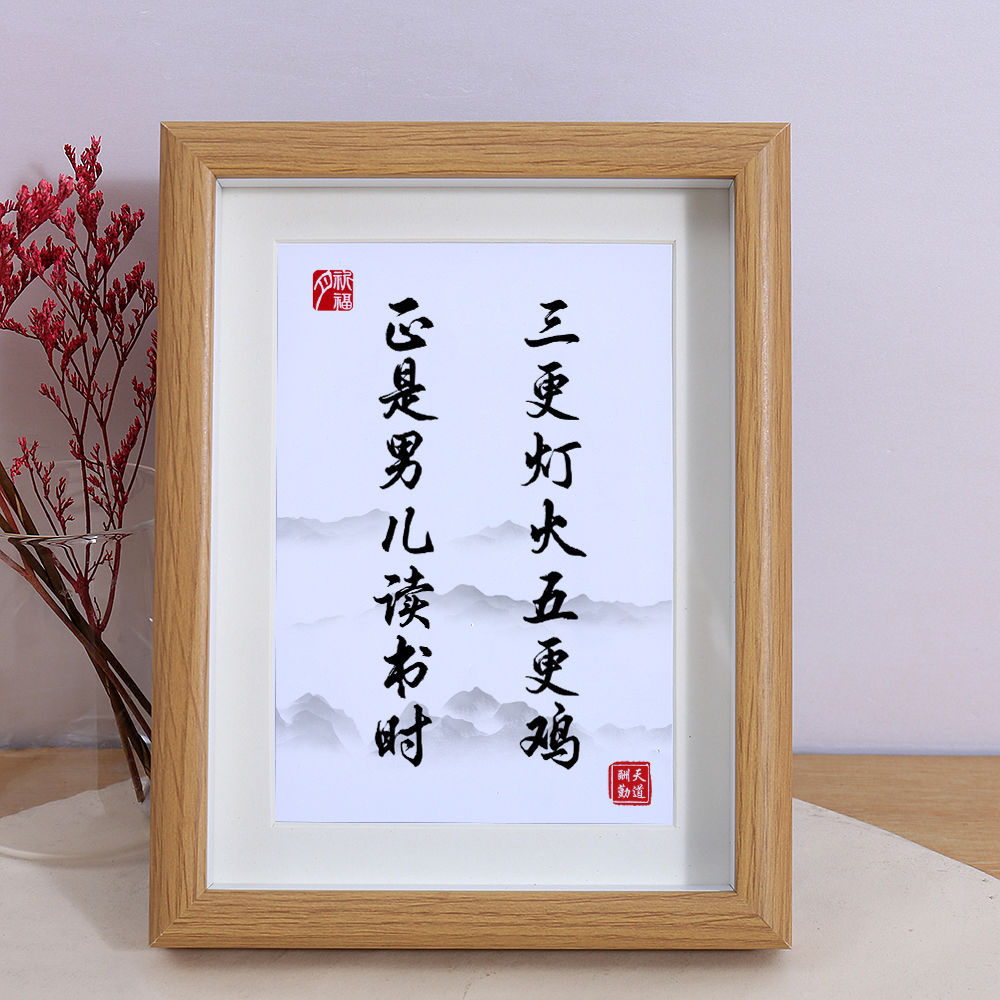 三更灯火五更鸡
正是男儿读书时
祈福
天道
酬勤